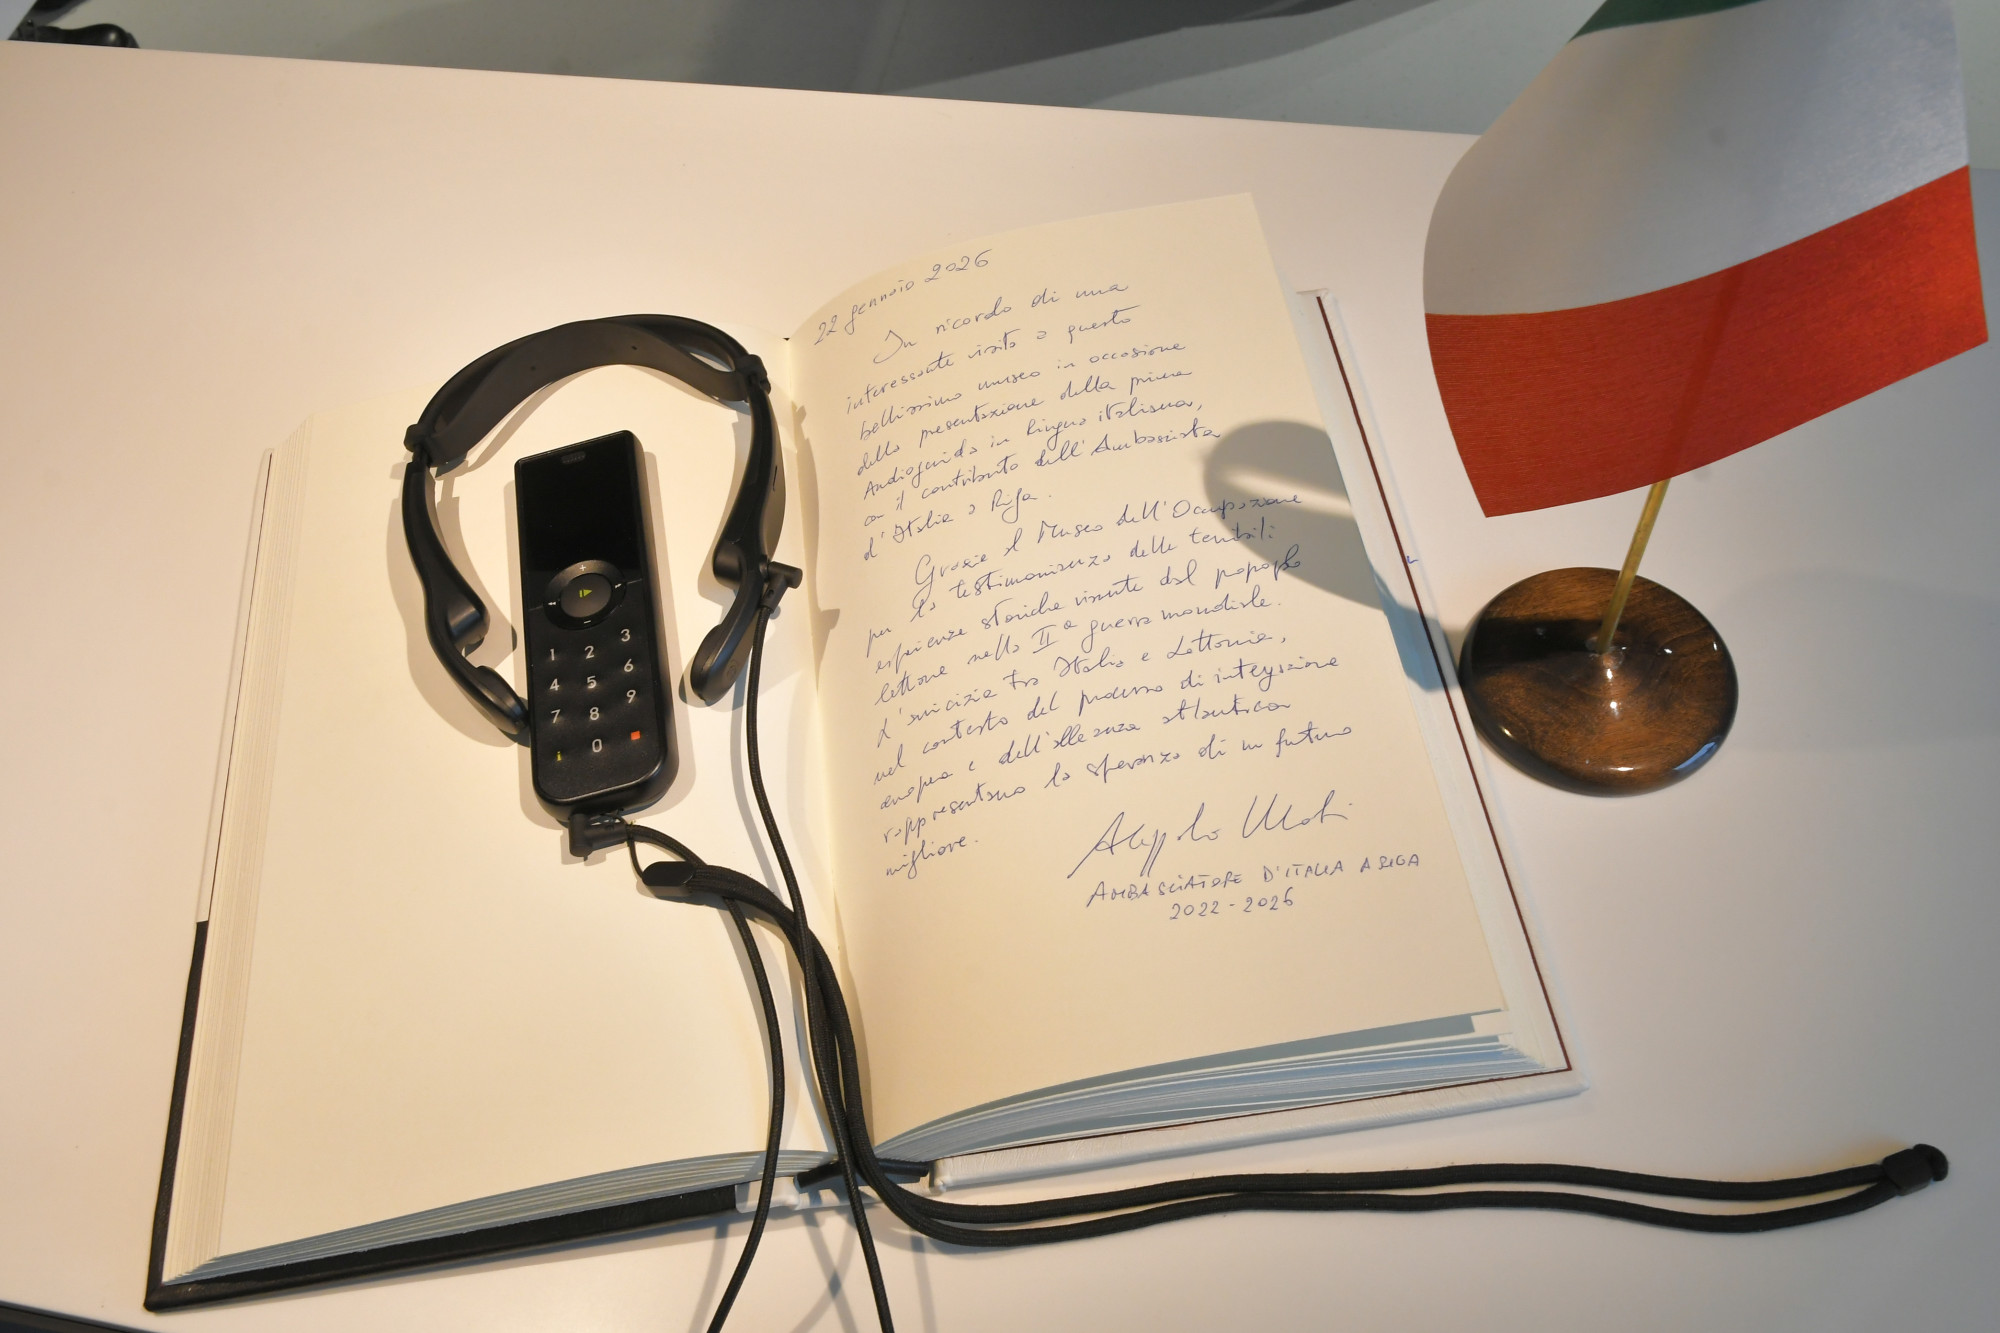 22 gennaio 2026
In ricordo di una
interessante visita a questo
bellissimo museo in occasione
della presentazione della prima
Audioguida in lingua italiana,
con il contributo dell'Ambasciata
d'Italia a Riga.
Grazie al Museo dell'Occupazione
per la testimonianza delle terribili
esperienze storiche vissute dal popolo
lettone nella II a guerra mondiale.
L'amicizia tra Italia e Lettonia,
nel contesto del processo di integrazione
europea e dell'alleanza atlantica
rappresentano la speranza di un futuro
migliore.
AMBASCIATORE D'ITALIA A RIGA
2022-2026
+
-
1 2 3
4 5 6
7 8 9
i 0